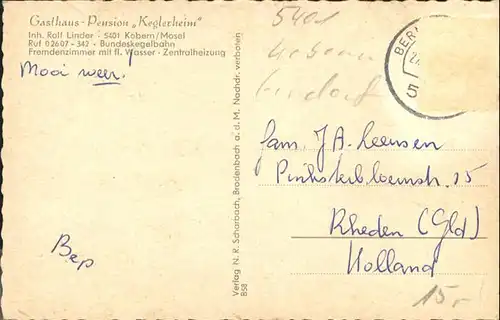 Gasthaus-Pension „Keglerheim"
Inh. Rolf Linder · 5401 Kobern/Mosel
Ruf 02607-342 · Bundeskegelbahn
Fremdenzimmer mit fl. Wasser · Zentralheizung
Mooi weer.
Bep
Verlag N. R. Scharbach, Brodenbach a. d. M. Nachdr. verboten
B58
5401
Kobern
Gondorf
BER
5
fam. J A. Leensen
Pinksterbloemstr. 15
Rheden (Gld)
Holland
15,-